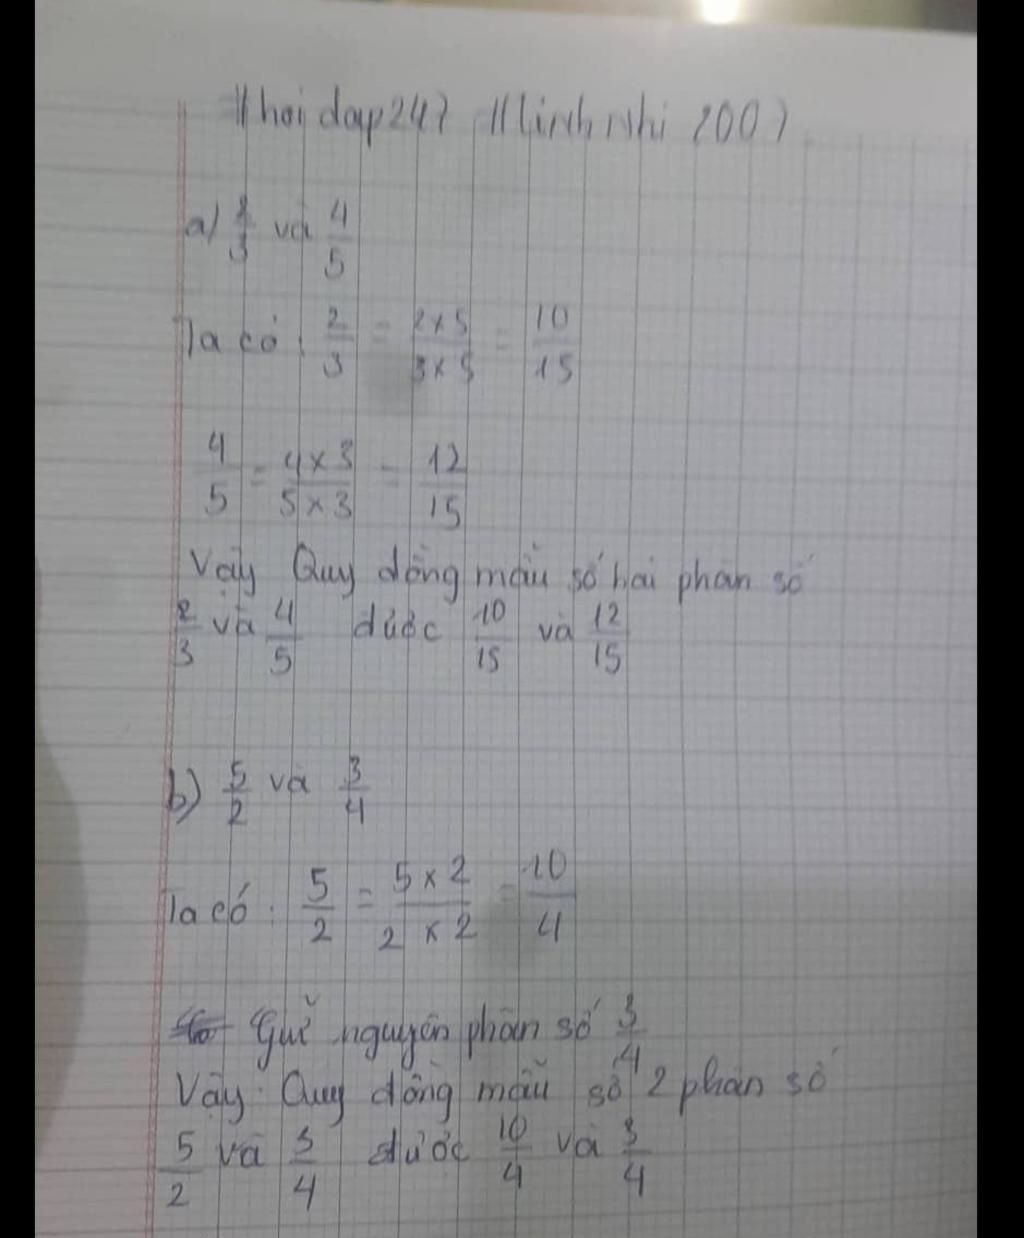 #hoidap247 #linhnhi2007
a) 2/3 và 4/5
Ta có: 2/3 = 2×5/3×5 = 10/15
4/5 = 4×3/5×3 = 12/15
Vậy Quy đồng mẫu số hai phân số
2/3 và 4/5 được 10/15 và 12/15
b) 5/2 và 3/4
Ta có: 5/2 = 5×2/2×2 = 10/4
Giữ nguyên phân số 3/4
Vậy: Quy đồng mẫu số 2 phân số
5/2 và 3/4 được 10/4 và 3/4